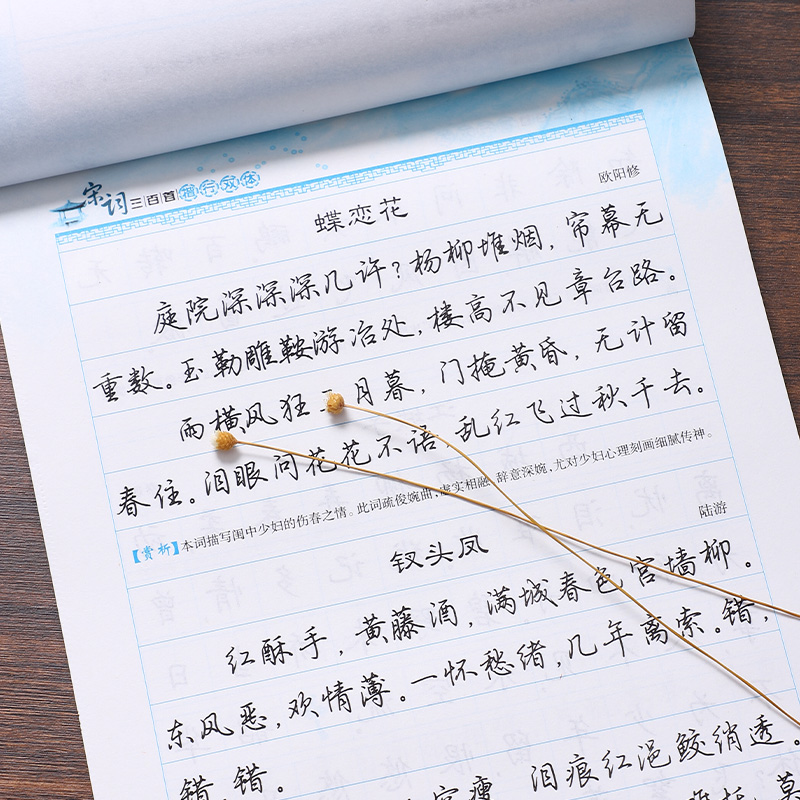 宋词三百首楷行双体
欧阳修
蝶恋花
庭院深深深几许?杨柳堆烟,帘幕无
重数。玉勒雕鞍游冶处,楼高不见章台路。
雨横风狂三月暮,门掩黄昏,无计留
春住。泪眼问花花不语,乱红飞过秋千去。
【赏析】本词描写闺中少妇的伤春之情。此词疏俊婉曲,虚实相融,辞意深婉,尤对少妇心理刻画细腻传神。
陆游
钗头凤
红酥手,黄藤酒,满城春色宫墙柳。
东风恶,欢情薄。一怀愁绪,几年离索。错,
错,错。
空瘦,泪痕红浥鲛绡透。
托,莫